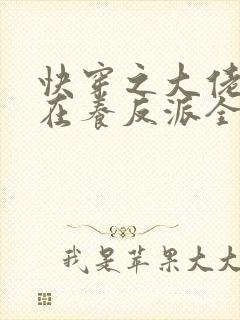 快穿之大佬
在养反派全
我是苹果大大